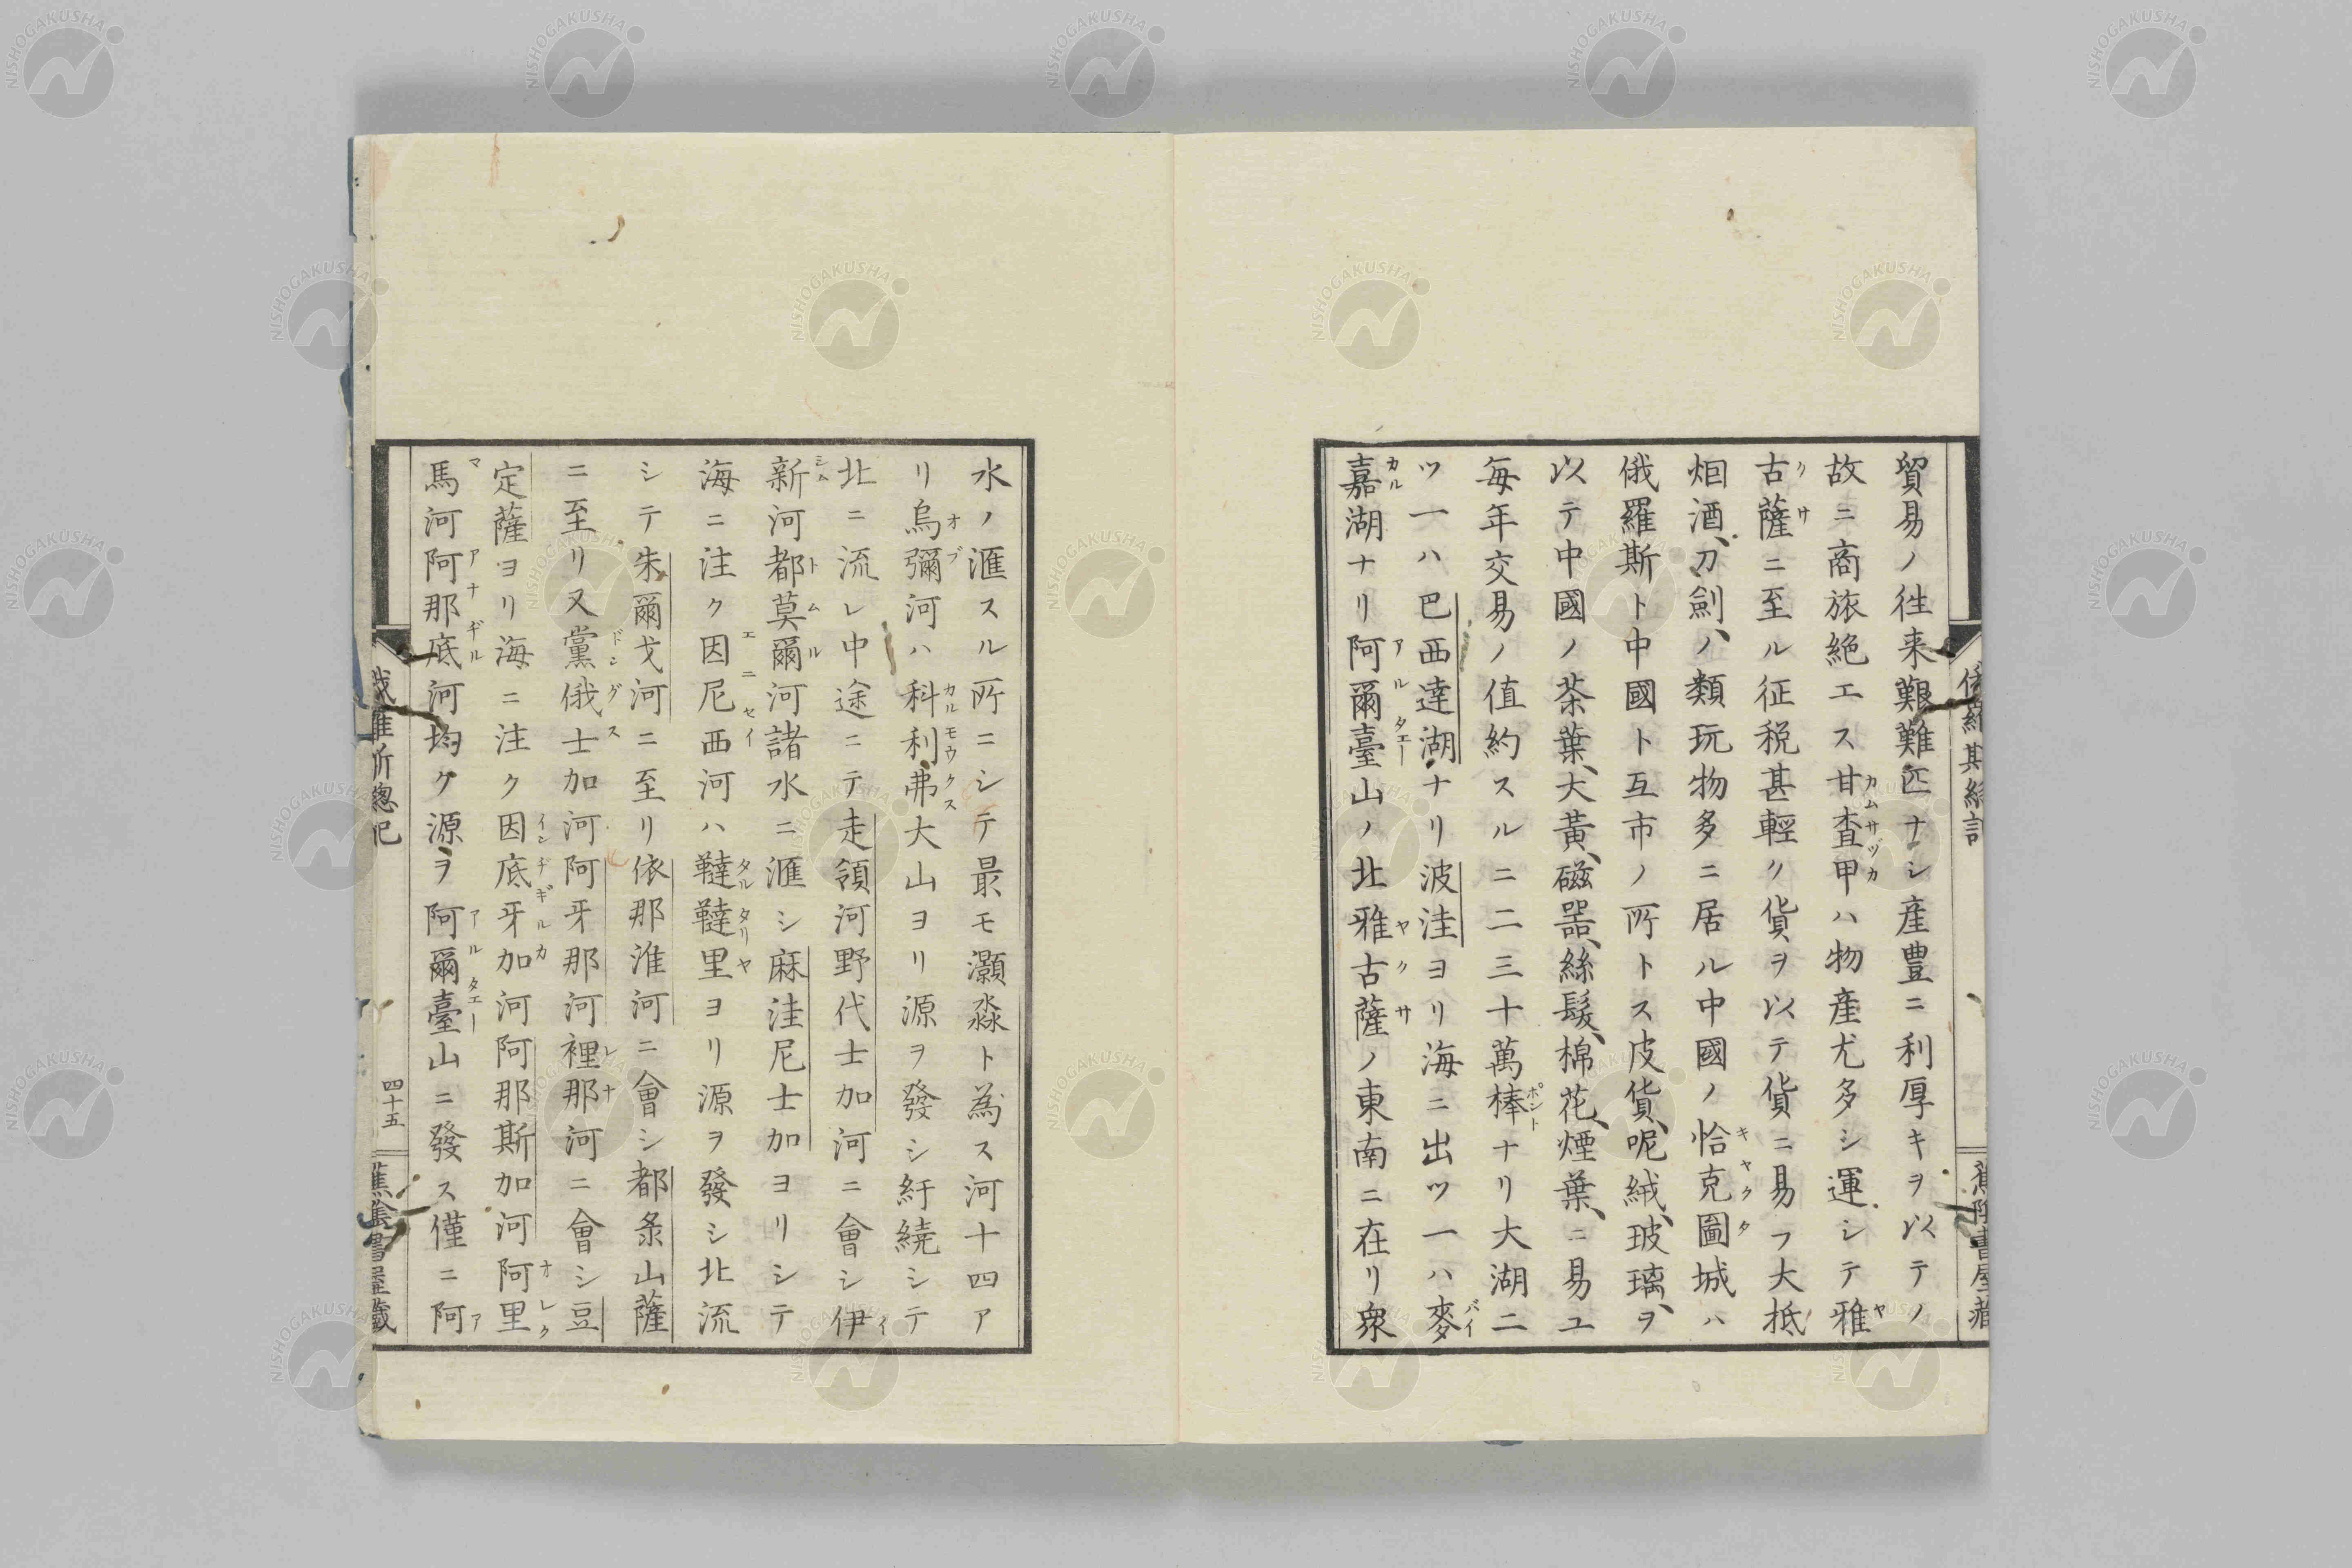 貿易ノ往来艱難匹ナシ産豊ニ利厚キヲ以テノ
故ニ商旅絶エス甘査甲ハ物産尤多シ運シテ雅
古薩ニ至ル征税甚輕ク貨ヲ以テ貨ニ易フ大抵
烟酒、刀劍、ノ類玩物多ニ居ル中國ノ恰克圖城ハ
俄羅斯ト中國ト互市ノ所トス皮貨、呢絨、玻璃、ヲ
以テ中國ノ茶葉、大黃、磁器、絲髮、棉花、煙葉、ニ易ユ
每年交易ノ值約スルニ二三十萬棒ナリ大湖二
ツ一ハ巴西達湖ナリ波洼ヨリ海ニ出ツ一ハ麥
嘉湖ナリ阿爾臺山ノ北雅古薩ノ東南ニ在リ衆
水ノ滙スル所ニシテ最モ灝淼ト為ス河十四ア
リ烏彌河ハ科利弗大山ヨリ源ヲ發シ紆繞シテ
北ニ流レ中途ニテ走領河野代士加河ニ會シ伊
新河都莫爾河諸水ニ滙シ麻洼尼士加ヨリシテ
海ニ注ク因尼西河ハ韃韃里ヨリ源ヲ發シ北流
シテ朱爾戈河ニ至リ依那淮河ニ會シ都彔山薩
ニ至リ又黨俄士加河阿牙那河裡那河ニ會シ豆
定薩ヨリ海ニ注ク因底牙加河阿那斯加河阿里
馬河阿那底河均ク源ヲ阿爾臺山ニ發ス僅ニ阿
四十五